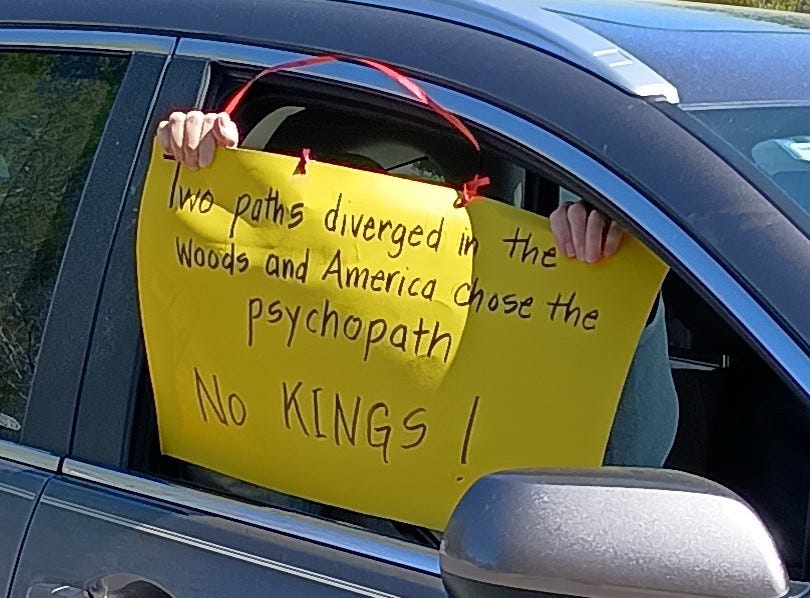 Two paths diverged in the
Woods and America chose the
psychopath
No KINGS!